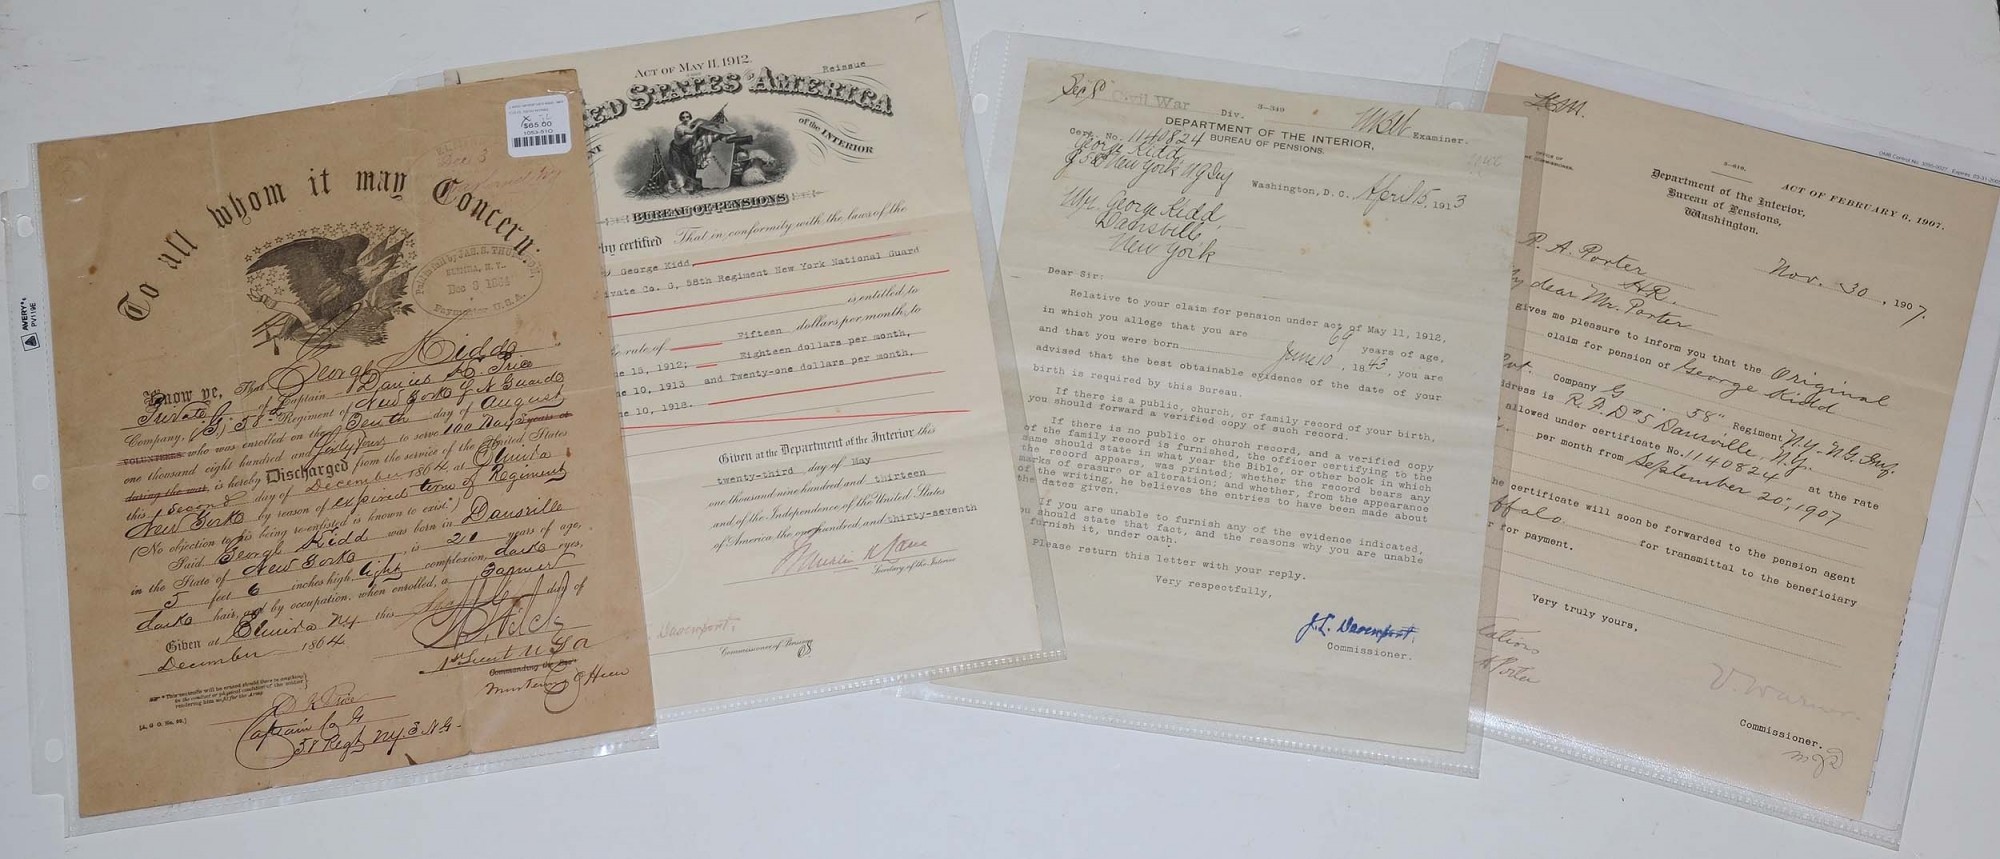 $65.00
1053-510
To all whom it may Concern.
Published by JAS. S. THURSTON,
ELMIRA, N.Y.
Dec 3 1864
Paymaster U.S.A.
Know ye, That George Kidd
Private of Captain Daniel K. Price
Company, (G,) 58th Regiment of New York S N Guard
VOLUNTEERS, who was enrolled on the Tenth day of August
one thousand eight hundred and Sixty four to serve 100 Days years or
during the war, is hereby Discharged from the service of the United States
this Second day of December, 1864, at Elmira
New York by reason of expired term of Regiment
(No objection to his being re-enlisted is known to exist.)
Said George Kidd was born in Dansville
in the State of New York, is 21 years of age,
5 feet 6 inches high, light complexion, dark eyes,
dark hair, and by occupation, when enrolled, a Farmer
Given at Elmira NY this day of
December 1864
1st Lieut U S A
Commanding the
Mustering Officer
D K Price
Captain Co G
58 Regt NY S N G
[A. G. O. No. 99.]
AVERY
PV119E
ACT OF MAY 11, 1912.
Reissue
ED STATES OF AMERICA
of the INTERIOR
BUREAU OF PENSIONS
by certified That in conformity with the laws of the
George Kidd,
Private Co. G, 58th Regiment New York National Guard
is entitled to
rate of Fifteen dollars per month, to
ne 15, 1912; Eighteen dollars per month,
ne 10, 1913 and Twenty-one dollars per month,
ne 10, 1918.
Given at the Department of the Interior this
twenty-third day of May
one thousand nine hundred and thirteen
and of the Independence of the United States
of America the one hundred and thirty-seventh
Franklin K Lane
Secretary of the Interior
Davenport.
Commissioner of Pensions
Civil War Div.
3-349
Examiner.
DEPARTMENT OF THE INTERIOR,
BUREAU OF PENSIONS.
Cert. No. 1140824
George Kidd
G 58 New York N G Inf
Washington, D. C. April 15, 1913
Mr. George Kidd,
Dansville
New York
Dear Sir:
Relative to your claim for pension under act of May 11, 1912,
in which you allege that you are 69 years of age,
and that you were born June 10, 1843, you are
advised that the best obtainable evidence of the date of your
birth is required by this Bureau.
If there is a public, church, or family record of your birth,
you should forward a verified copy of such record.
If there is no public or church record, and a verified copy
of the family record is furnished, the officer certifying to the
same should state in what year the Bible, or other book in which
the record appears, was printed; whether the record bears any
marks of erasure or alteration; and whether, from the appearance
of the writing, he believes the entries to have been made about
the dates given.
If you are unable to furnish any of the evidence indicated,
you should state that fact, and the reasons why you are unable
furnish it, under oath.
Please return this letter with your reply.
Very respectfully,
J.L. Davenport.
Commissioner.
OFFICE OF
COMMISSIONER.
ACT OF FEBRUARY 6, 1907.
Department of the Interior,
Bureau of Pensions,
Washington.
Nov. 30, 1907.
P. A. Porter
H.R.
My dear Mr. Porter
gives me pleasure to inform you that the Original
claim for pension of George Kidd
Company G, 58" Regiment N.Y. N.G. Inf.
dress is R.F.D #5 Dansville, N.Y.
allowed under certificate No. 1140824 at the rate
per month from September 20, 1907
he certificate will soon be forwarded to the pension agent
ffalo for transmittal to the beneficiary
for payment.
Very truly yours,
V. Warner
Commissioner.